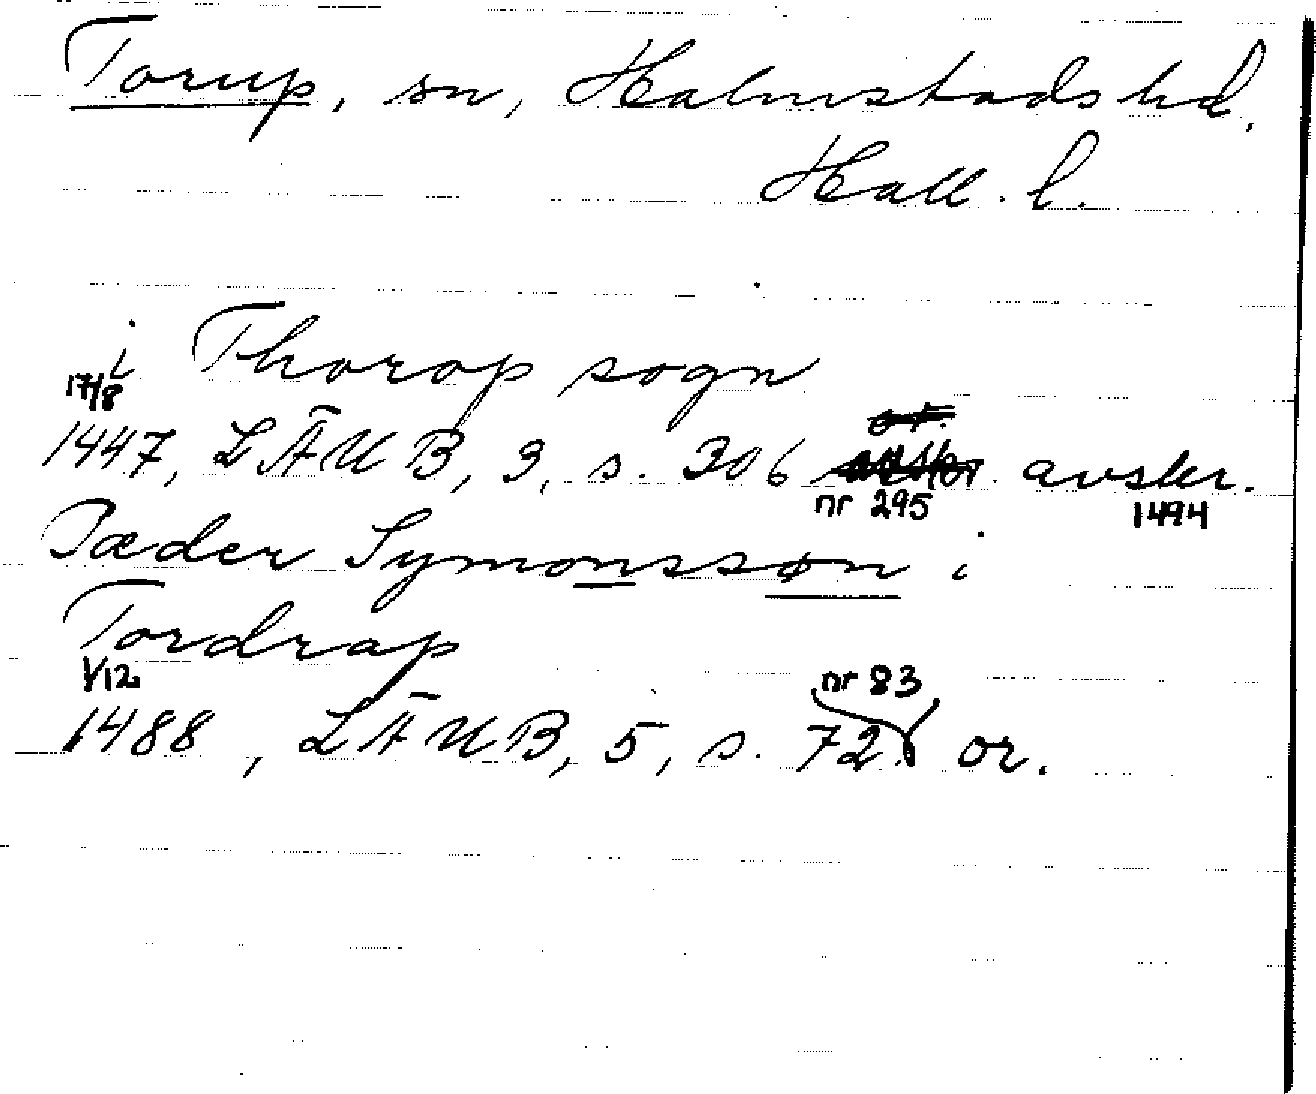 Torup, sn, Halmstads hd.
Hall. l.
i Thorop sogn
17/8
1447, LÄUB, 3, s. 306 nr 295 avskr. 1494
Pæder Symonssøn i
Tordrap
1/12
1488, LÄUB, 5, s. 72 nr 83 or.